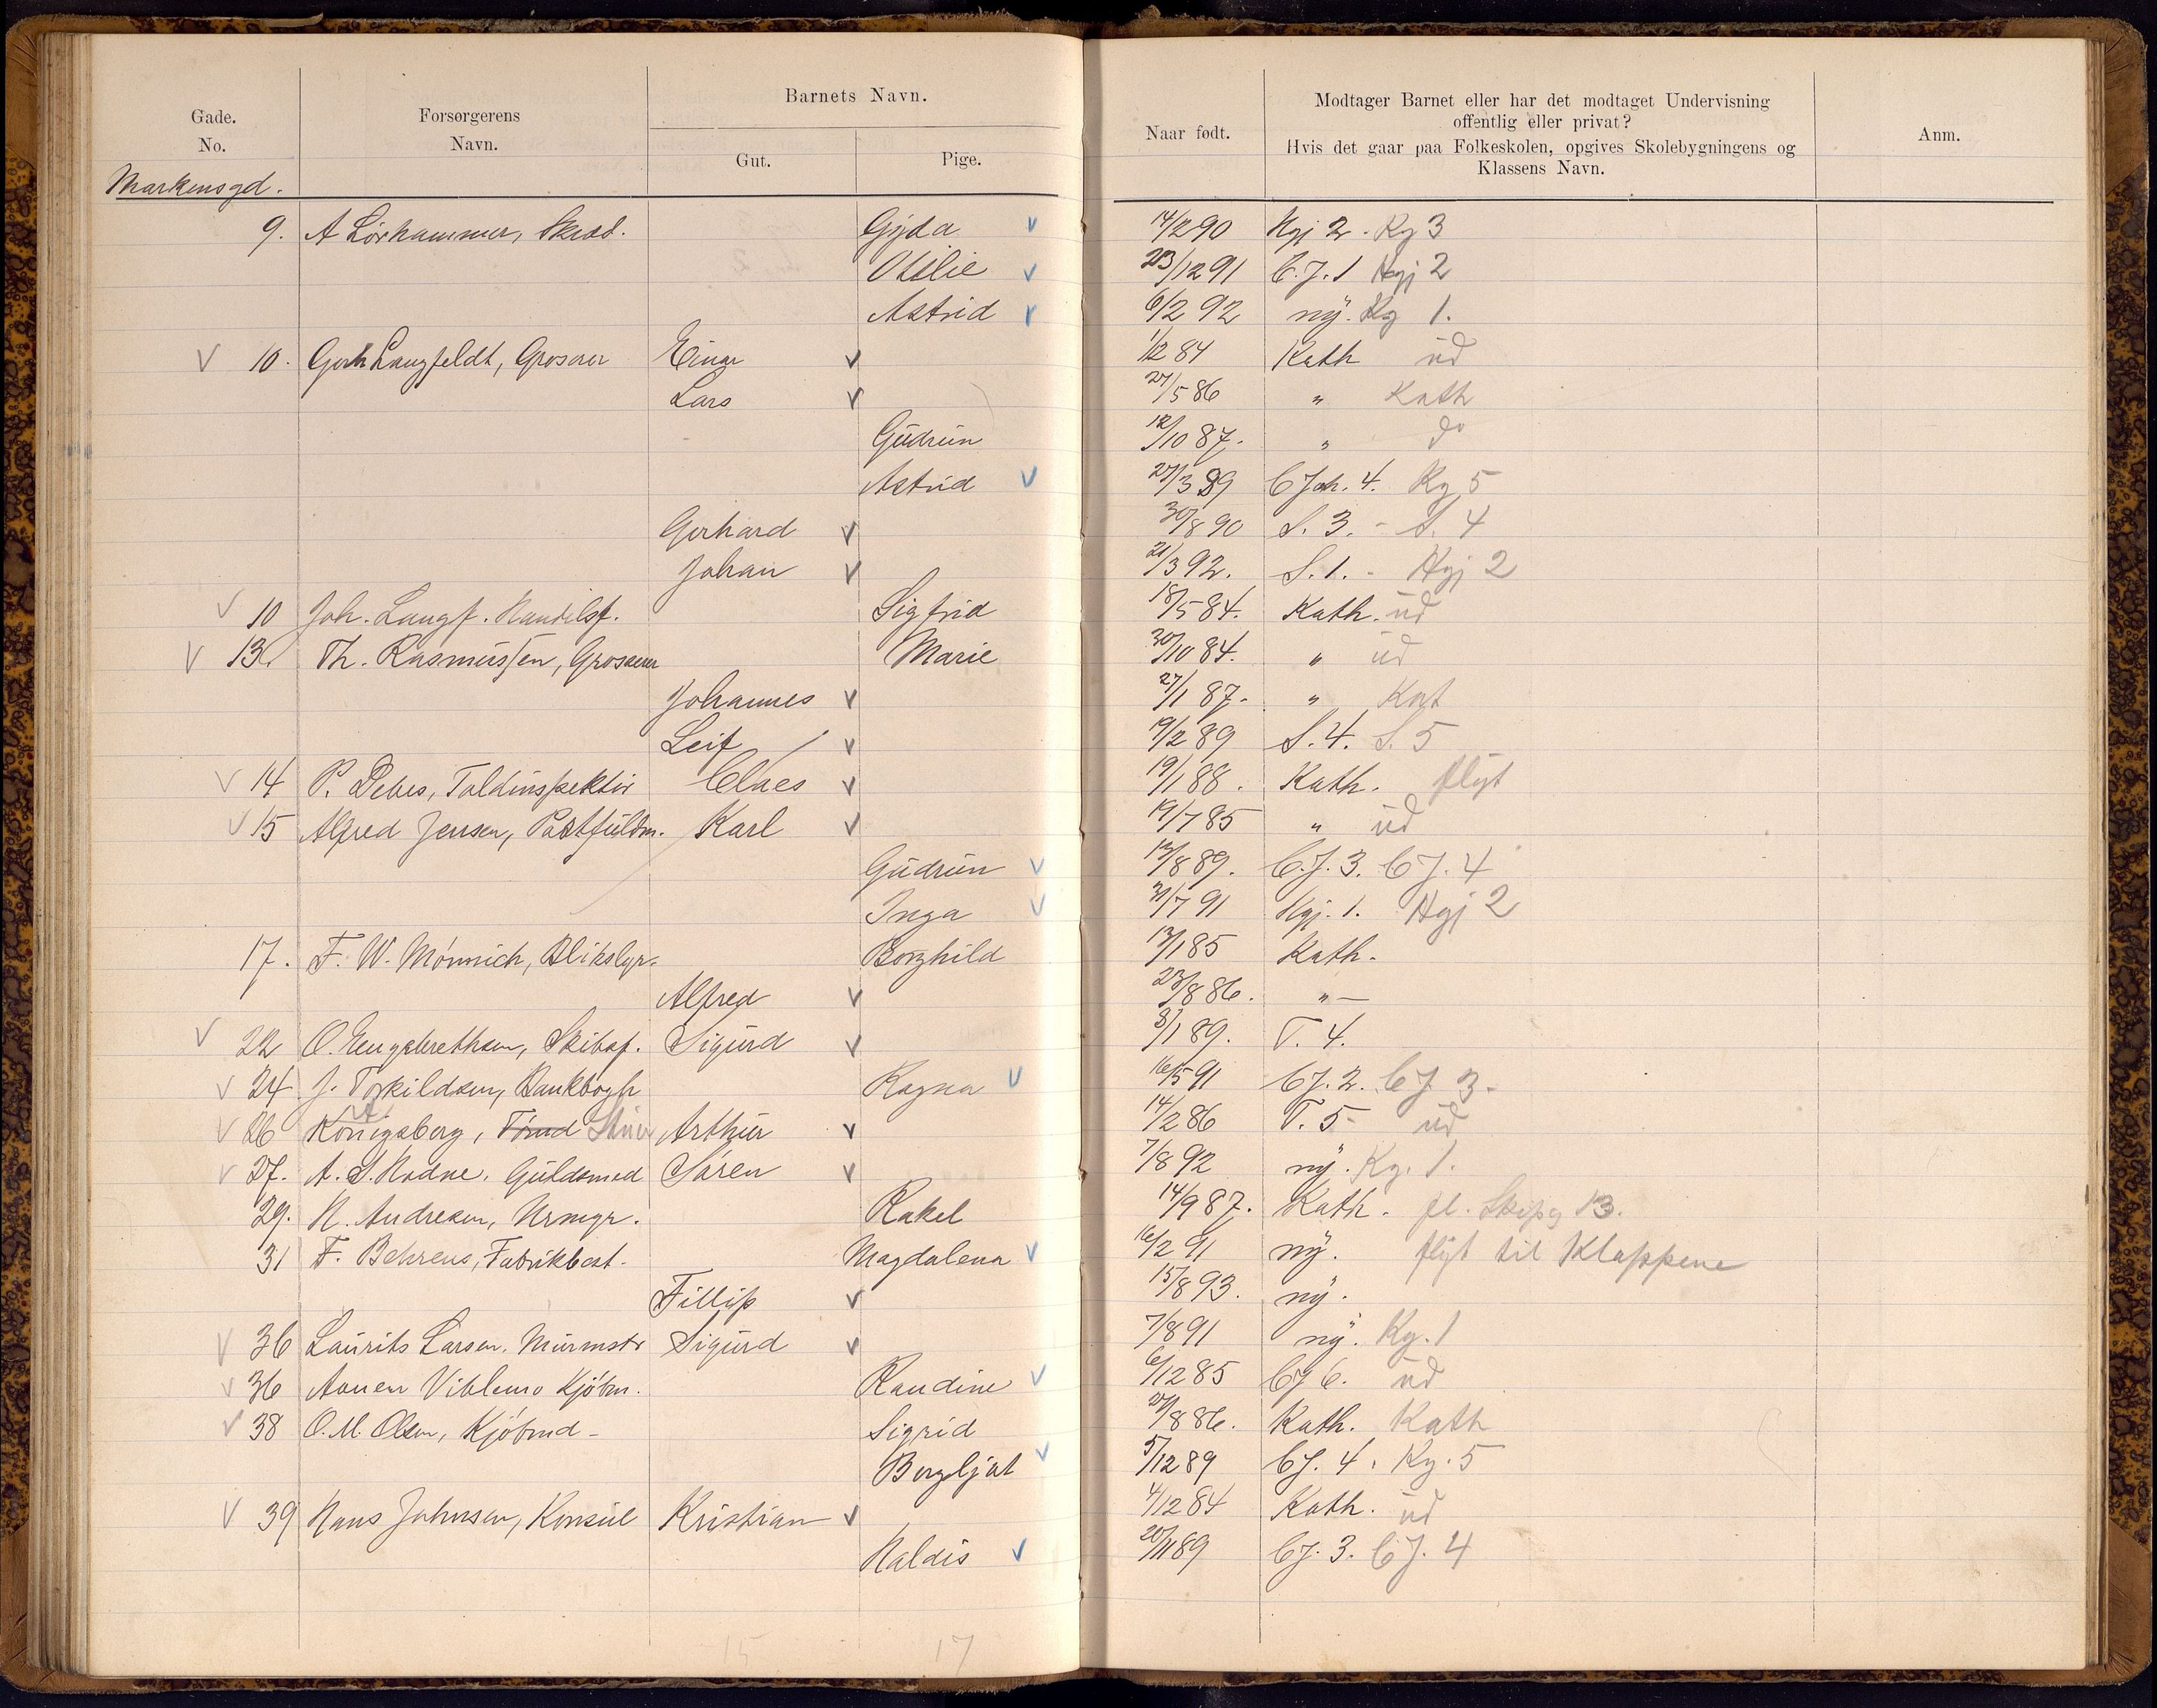 Gade.
No.
Forsørgerens
Navn.
Barnets Navn.
Gut.
Pige.
Naar født.
Modtager Barnet eller har det modtaget Undervisning
offentlig eller privat?
Hvis det gaar paa Folkeskolen, opgives Skolebygningens og
Klassens Navn.
Anm.
Markensgd.
9. A Lörhammer, Gyda v 14/2 90 Kgj 2 - Kg 3
Otilie v 23/12 91 C.J. 1 Kgj 2
Astrid v 6/2 92 ny. Kg 1.
v 10. Gerh Langfeldt, Grosserer Einar v 1/12 84 Kath ud
Lars v 27/5 86 " Kath
Gudrun 12/10 87. " do
Astrid v 27/3 89 C Joh. 4. Kg 5
Gerhard v 30/8 90 S. 3. - S. 4
Johan v 21/3 92. S. 1. - Kgj 2
v 10 Joh. Langf. Handelsf. Sigfrid 18/5 84. Kath. ud
v 13. Th. Rasmussen, Grosserer Marie 30/10 84. " ud
Johannes v 27/1 87. " Kat
Leif v 19/2 89 S. 4. S. 5
v 14 P. Debes, Toldinspektör Claes v 19/1 88. Kath. flyt
v 15 Alfred Jensen, Postfuldm. Karl v 19/7 85 " ud
Gudrun v 12/8 89. C.J. 3. CJ. 4
Inga v 31/7 91 Kgj. 1. Kgj 2
17. F. W. Mönnich, Blikslgr. Borghild 13/1 85 Kath.
Alfred v 23/8 86. " —
v 22 O. Engebrethsen, Skibsf. Sigurd v 3/1 89. T. 4.
v 24 J. Torkildsen, Bankbogh Ragna v 16/5 91 CJ. 2. CJ. 3.
v 26 Königsberg, Arthur v 14/2 86 T. 5 - ud
v 27. A. S. Rodne, Guldsmed Sören v 7/8 92 ny. Kg. 1.
29. N. Andresen, Urmgr. Rakel 14/9 87. Kath. fl. Skipg 13.
31 F. Behrens, Fabrikbest. Magdalena v 16/2 91 ny. flyt til Klappene
Fillip v 15/8 93. ny.
v 36 Laurits Larsen, Murmstr Sigurd v 7/8 91 ny. Kg. 1
v 36 Aanen Viblemo Kjöbm. Randine v 6/12 85 CJ 6. ud
v 38 O. M. Olsen, Kjöbmd - Sigrid 27/8 86. Kath. Kath
Bergljot v 5/12 89 CJ. 4. Kg. 5
v 39 Hans Johnsen, Konsul Kristian v 4/12 84 Kath. ud
Haldis v 20/11 89 CJ. 3. CJ. 4
15 17